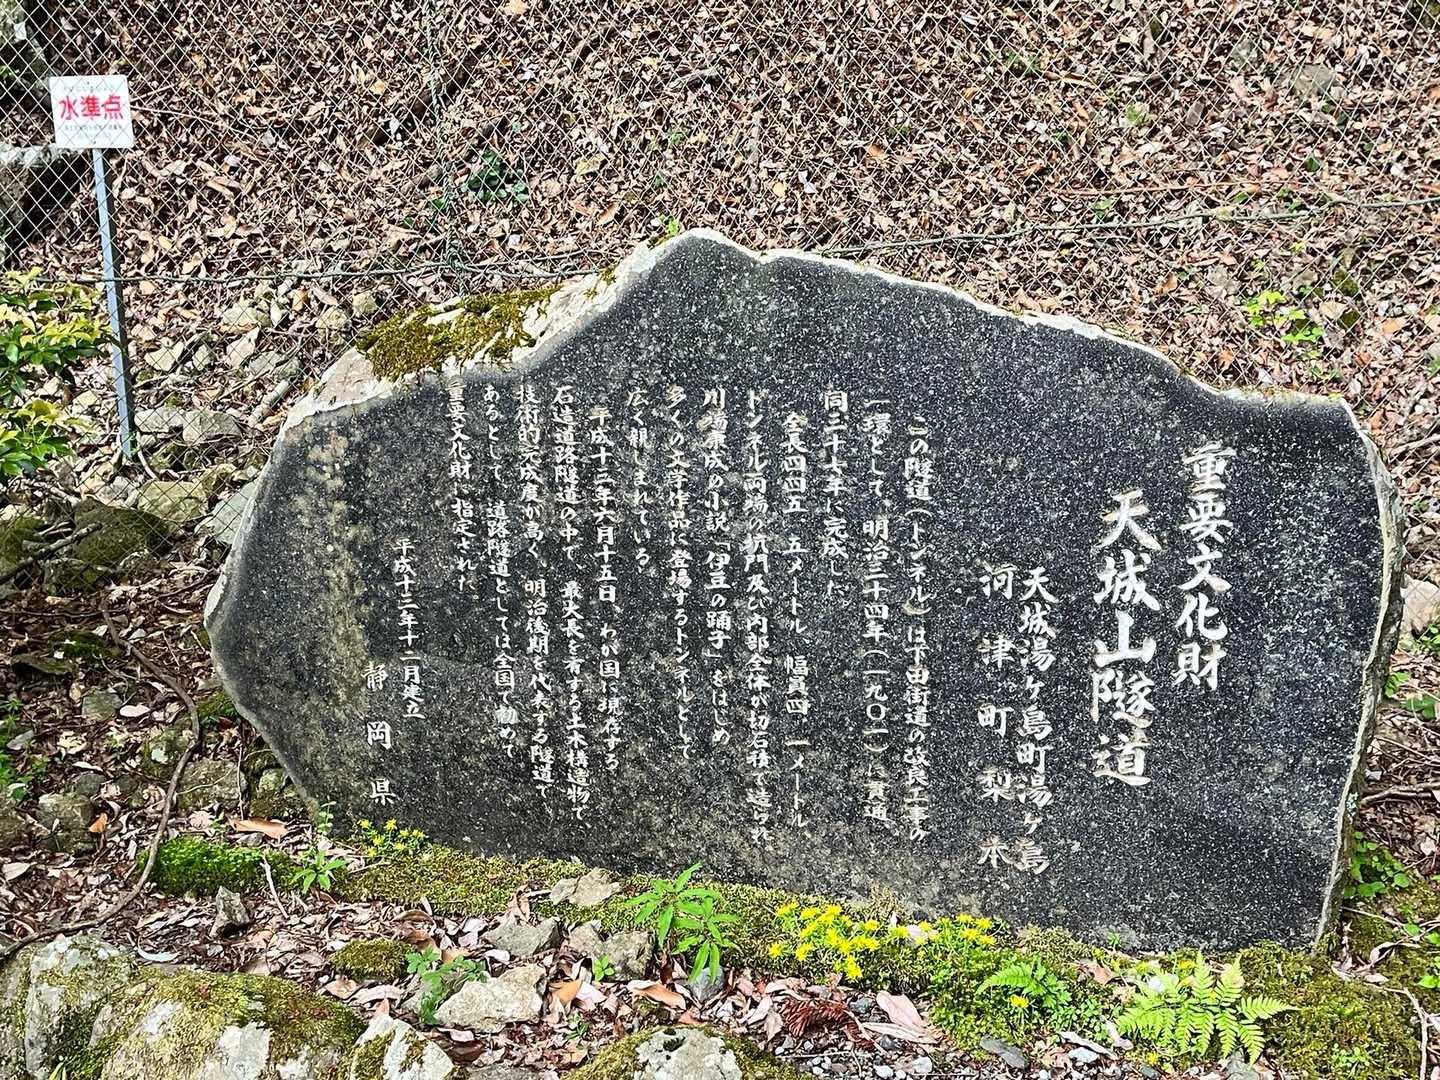 水準点
重要文化財
天城山隧道
天城湯ヶ島町湯ヶ島
河津町梨本
この隧道（トンネル）は下田街道の改良工事の
一環として、明治三十四年（一九〇一）に貫通、
同三十七年に完成した。
全長四四五．五メートル、幅員四．一メートル
トンネル両端の坑門及び内部全体が切石積で造られ
川端康成の小説「伊豆の踊子」をはじめ
多くの文学作品に登場するトンネルとして
広く親しまれている。
平成十三年六月十五日、わが国に現存する
石造道路隧道の中で、最大長を有する土木構造物で、
技術的完成度が高く、明治後期を代表する隧道で
あるとして、道路隧道としては全国で初めて
重要文化財に指定された。
平成十三年十二月建立
静岡県